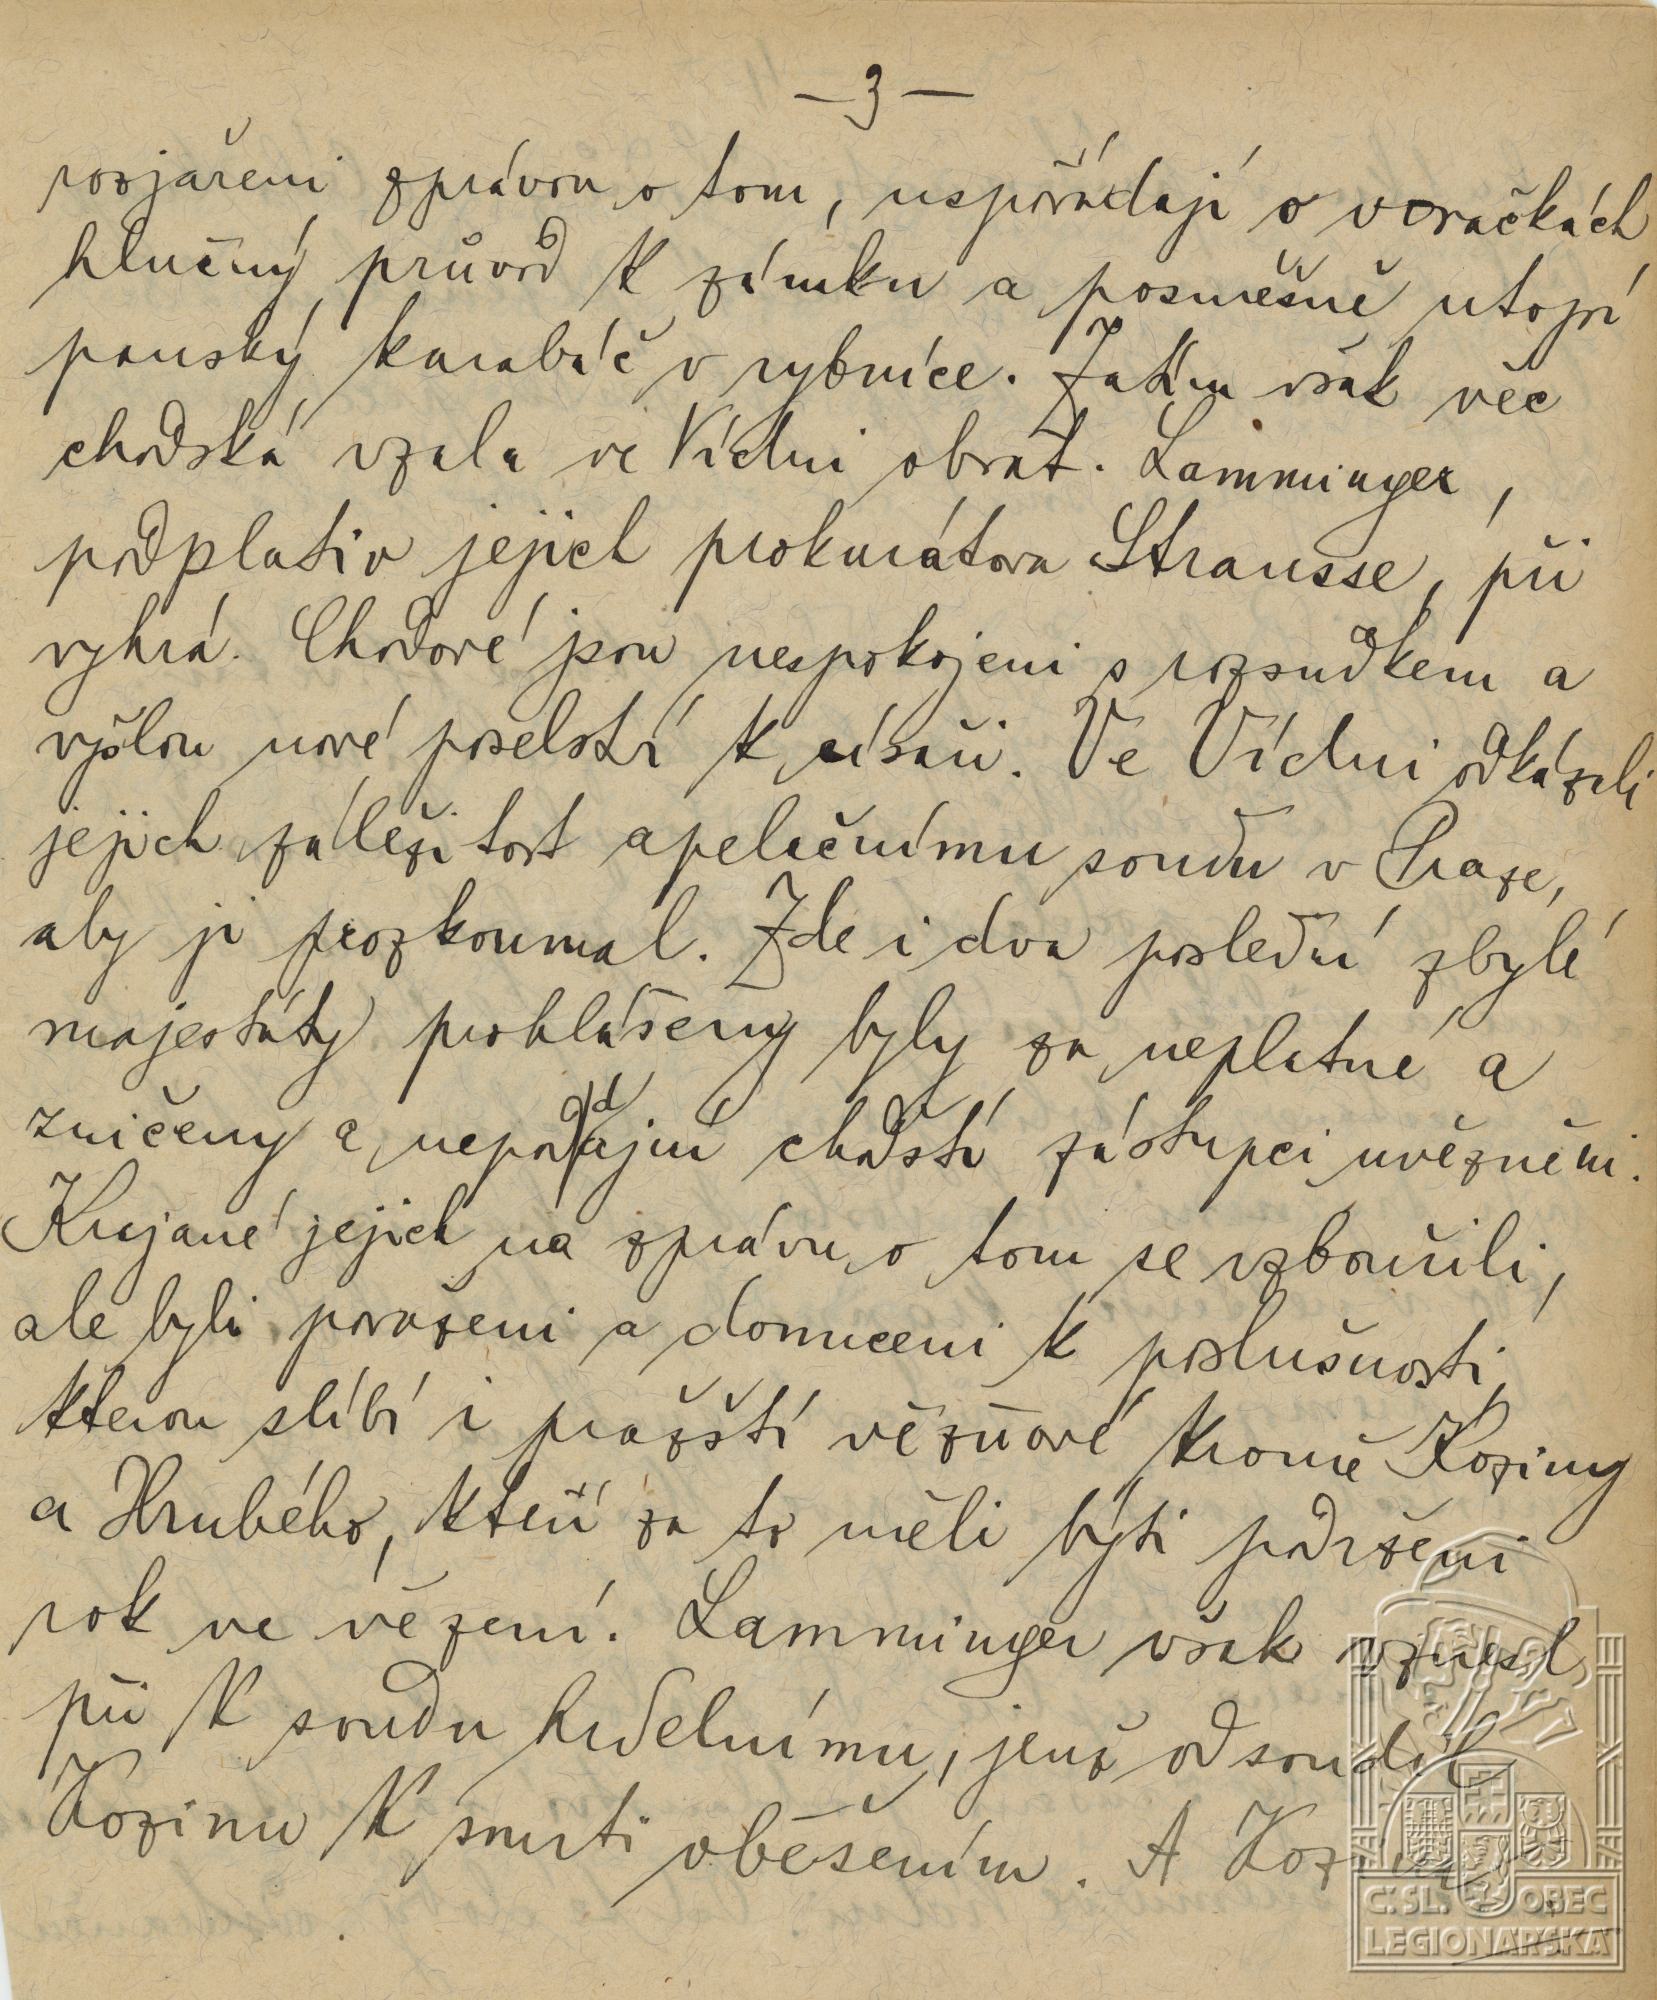 — 3 —
rozjařeni zprávou o tom, uspořádají o voračkách
hlučný průvod k zámku a posměšně utopí
panský karabáč v rybníce. Zatím však věc
chodská vzala ve Vídni obrat. Lamminger,
podplativ jejich prokurátora Strausse, při
vyhrá. Chodové jsou nespokojeni s rozsudkem a
vyšlou nové poselství k císaři. Ve Vídni odkázali
jejich záležitost apelačnímu soudu v Praze,
aby ji prozkoumal. Zde i dva poslední zbylé
majestáty prohlášeny byly za neplatné a
zničeny a nepoddajní chodští zástupci uvězněni.
Krajané jejich na zprávu o tom se vzbouřili,
ale byli poraženi a donuceni k poslušnosti,
kterou slíbí i pražští vězňové kromě Koziny
a Hrubého, kteří za to měli býti podrženi
rok ve vězení. Lamminger však vznesl
při k soudu hrdelnímu, jenž odsoudil
Kozinu k smrti oběšením. A Kozina
Č.SL. OBEC
LEGIONÁŘSKÁ